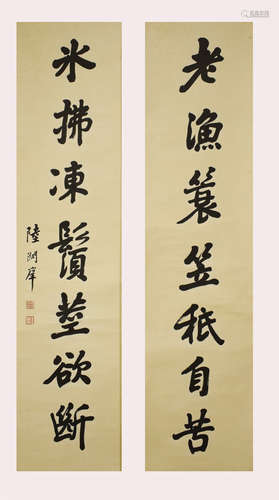 老漁簑笠秖自苦
氷拂凍鬚莖欲斷
陸潤庠